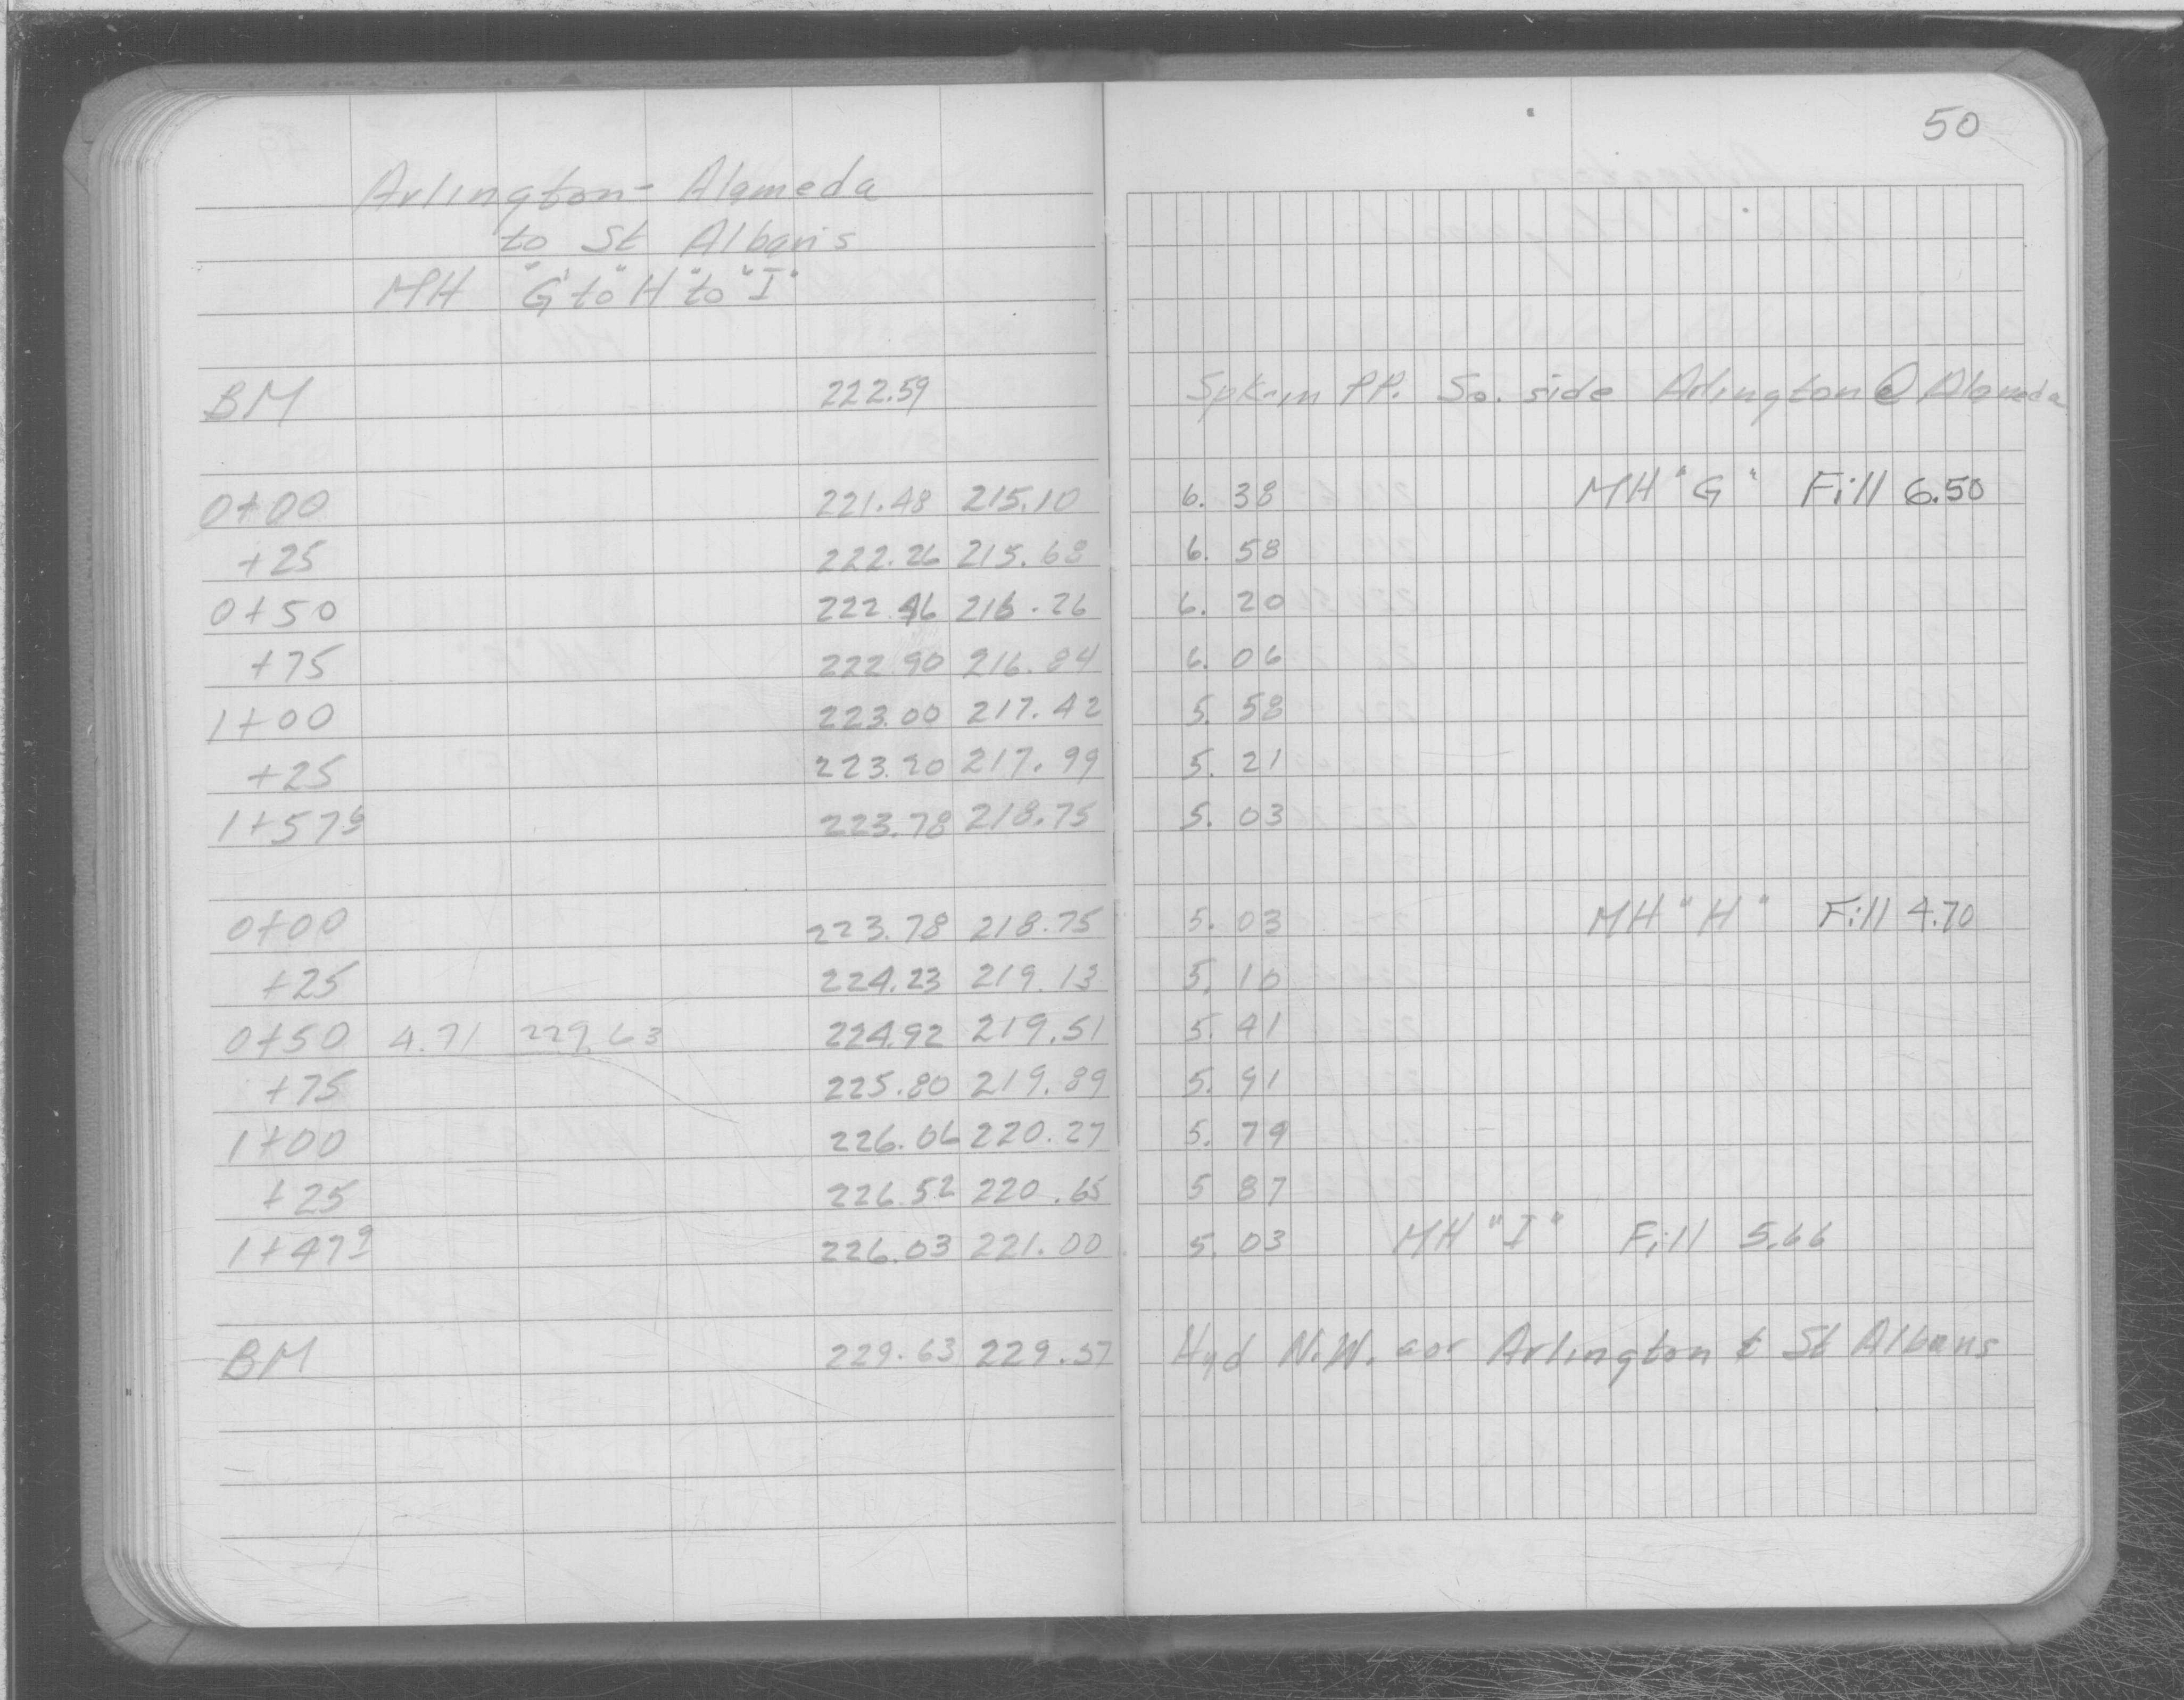 50
Arlington - Alameda
to St Albans
MH "G" to "H" to "I"
BM 222.59 Spk in P.P. So. side Arlington @ Alameda
0+00 221.48 215.10 6.38 MH "G" Fill 6.50
+25 222.26 215.68 6.58
0+50 222.46 216.26 6.20
+75 222.90 216.84 6.06
1+00 223.00 217.42 5.58
+25 223.20 217.99 5.21
1+57⁹ 223.78 218.75 5.03
0+00 223.78 218.75 5.03 MH "H" Fill 4.70
+25 224.23 219.13 5.10
0+50 4.71 229.63 224.92 219.51 5.41
+75 225.80 219.89 5.91
1+00 226.06 220.27 5.79
+25 226.52 220.65 5 87
1+47⁹ 226.03 221.00 5.03 MH "I" Fill 5.66
BM 229.63 229.57 Hyd N.W. cor Arlington & St Albans